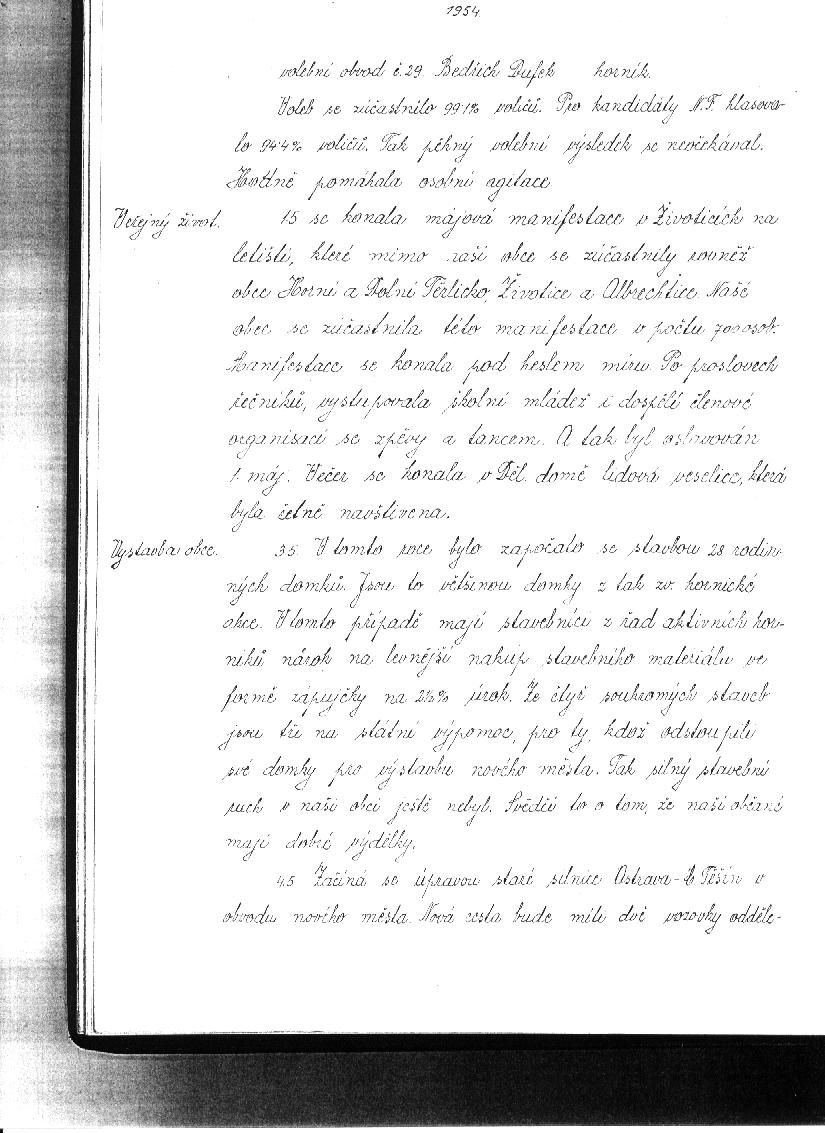 1954.
volební obvod č. 29. Bedřich Dufek horník.
Voleb se zúčastnilo 99·1% voličů. Pro kandidáty N.F. hlasova-
lo 94·4% voličů. Tak pěkný volební výsledek se neočekával.
Hodně pomáhala osobní agitace
Veřejný život.
1·5 se konala májová manifestace v Životicích na
letišti, které mimo naší obce se zúčastnily rovněž
obce Horní a Dolní Těrlicko, Životice a Albrechtice. Naše
obec se zúčastnila této manifestace v počtu 700 osob.
Manifestace se konala pod heslem míru. Po proslovech
řečníků, vystupovala školní mládež i dospělí členové
organisací se zpěvy a tancem. A tak byl oslavován
1. máj. Večer se konala v Děl. domě lidová veselice, která
byla četně navštívena.
Výstavba obce.
3·5. V tomto roce bylo započato se stavbou 28 rodin-
ných domků. Jsou to většinou domky z tak zv. hornické
akce. V tomto případě mají stavebníci z řad aktivních hor-
níků nárok na levnější nákup stavebního materiálu ve
formě zápujčky na 2½% úrok. Ze čtyř soukromých staveb
jsou tři na státní výpomoc, pro ty, kdož odstoupili
své domky pro výstavbu nového města. Tak silný stavební
ruch v naší obci ještě nebyl. Svědčí to o tom, že naši občané
mají dobré výdělky.
4·5 Začíná se úpravou staré silnice Ostrava-Č. Těšín v
obvodu nového města. Nová cesta bude míti dvě vozovky odděle-